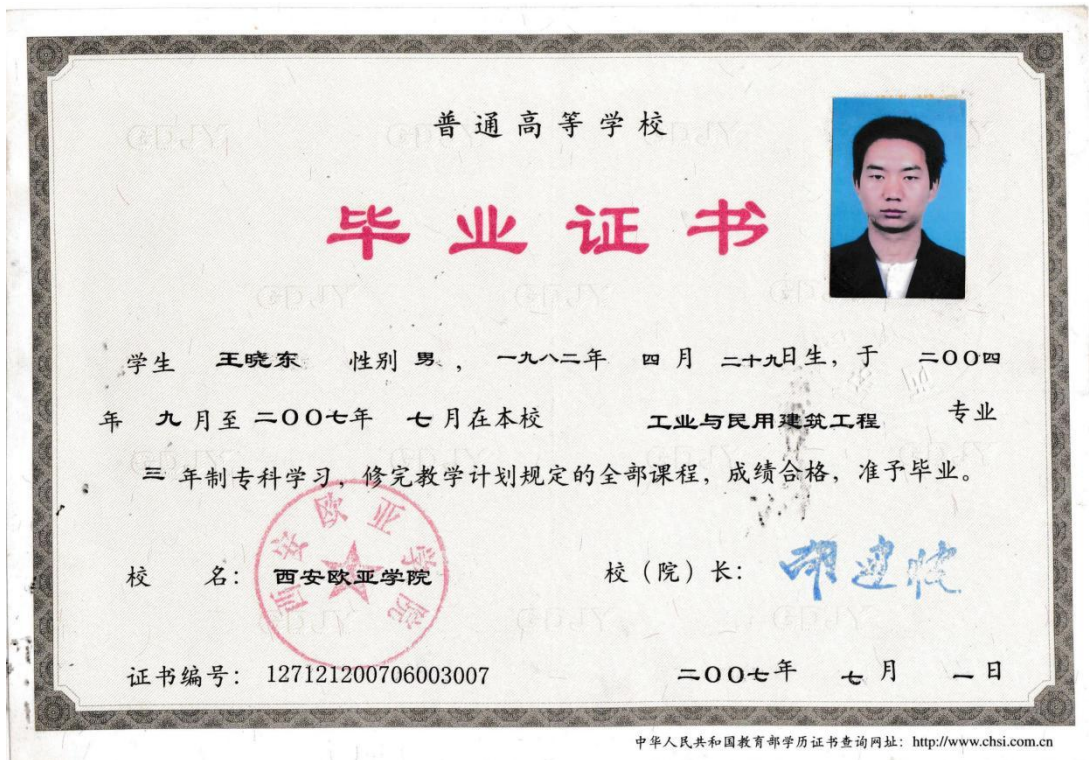 普通高等学校
毕业证书
学生 王晓东 性别 男 ， 一九八二年 四 月 二十九日生，于 二００四
年 九 月至 二００七年 七 月在本校 工业与民用建筑工程 专业
三 年制专科学习，修完教学计划规定的全部课程，成绩合格，准予毕业。
西安欧亚学院
校 名： 西安欧亚学院 校（院）长： 胡建波
证书编号： 127121200706003007 二００七年 七 月 一 日
中华人民共和国教育部学历证书查询网址：http://www.chsi.com.cn